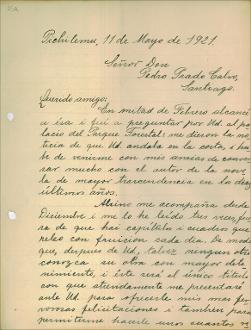 Pichilemu, 11 de Mayo de 1921
Señor Don
Pedro Prado Calvo,
Santiago.
Querido amigo:
En mitad de Febrero alcancé
a ésa i fuí a preguntar por Ud. al pa-
lacio del Parque Forestal: me dieron la no-
ticia de que Ud. andaba en la costa, i hu-
be de venirme con mis ansias de conver-
sar mucho con el autor de la nove-
la de mayor trascendencia en los
últimos años.
Alsino me acompaña desde
Diciembre i me lo he leído tres veces, fue-
ra de que hai capítulo i cuadro que
releo con fruición cada día. De modo
que, después de Ud., talvez ninguno otro
conozca su obra con mayor deteni-
miento, i éste será el único título
con que atentamente me presentaré
ante Ud. para ofrecerle mis mas fer-
vorosas felicitaciones i tambien para
permitirme hacerle unos cuantos